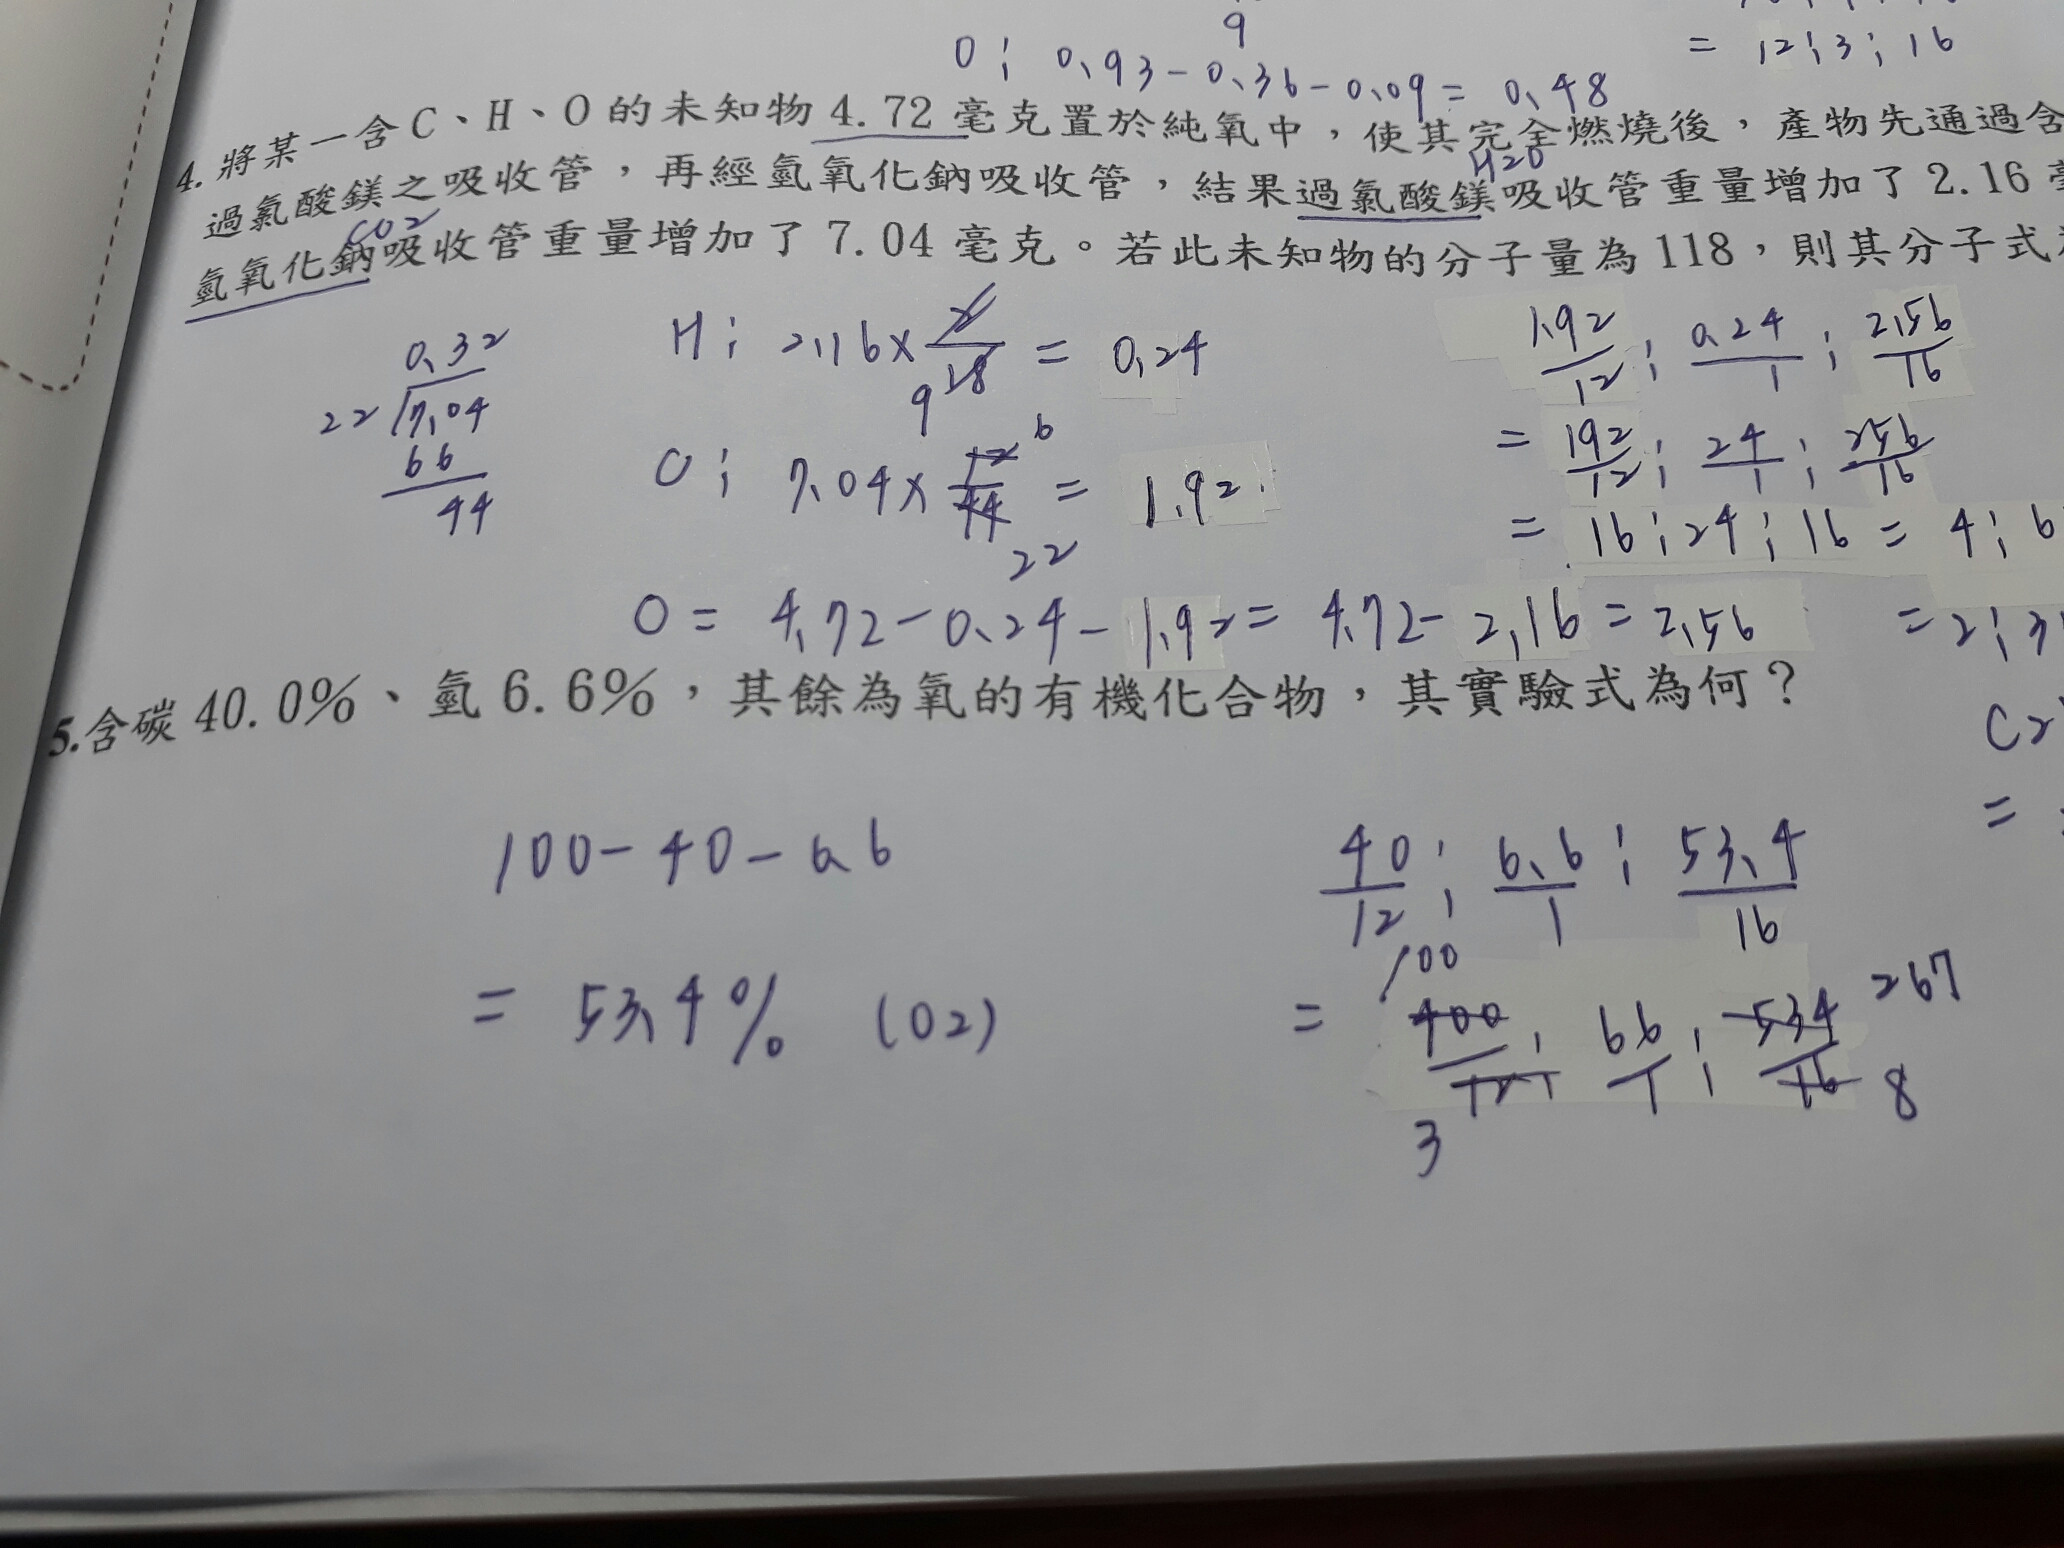 9
O : 0.93-0.36-0.09= 0.48
= 12:3:16
4. 將某一含C、H、O的未知物4.72毫克置於純氧中，使其完全燃燒後，產物先通過含
H2O
過氯酸鎂之吸收管，再經氫氧化鈉吸收管，結果過氯酸鎂吸收管重量增加了2.16
CO2
氫氧化鈉吸收管重量增加了7.04毫克。若此未知物的分子量為118，則其分子式
H : 2.16×2/18 = 0.24
9
0.32
22/7.04
66
44
C : 7.04×12/44 = 1.92
6
22
O = 4.72-0.24-1.92= 4.72-2.16=2.56
1.92/12 : 0.24/1 : 2.56/16
= 192/12 : 24/1 : 256/16
= 16:24:16 = 4:6
= 2:3
C2
=
5.含碳40.0%、氫6.6%，其餘為氧的有機化合物，其實驗式為何？
100-40-6.6
= 53.4% (O2)
40/12 : 6.6/1 : 53.4/16
100 267
= 400/12 : 66/1 : 534/16
3 8